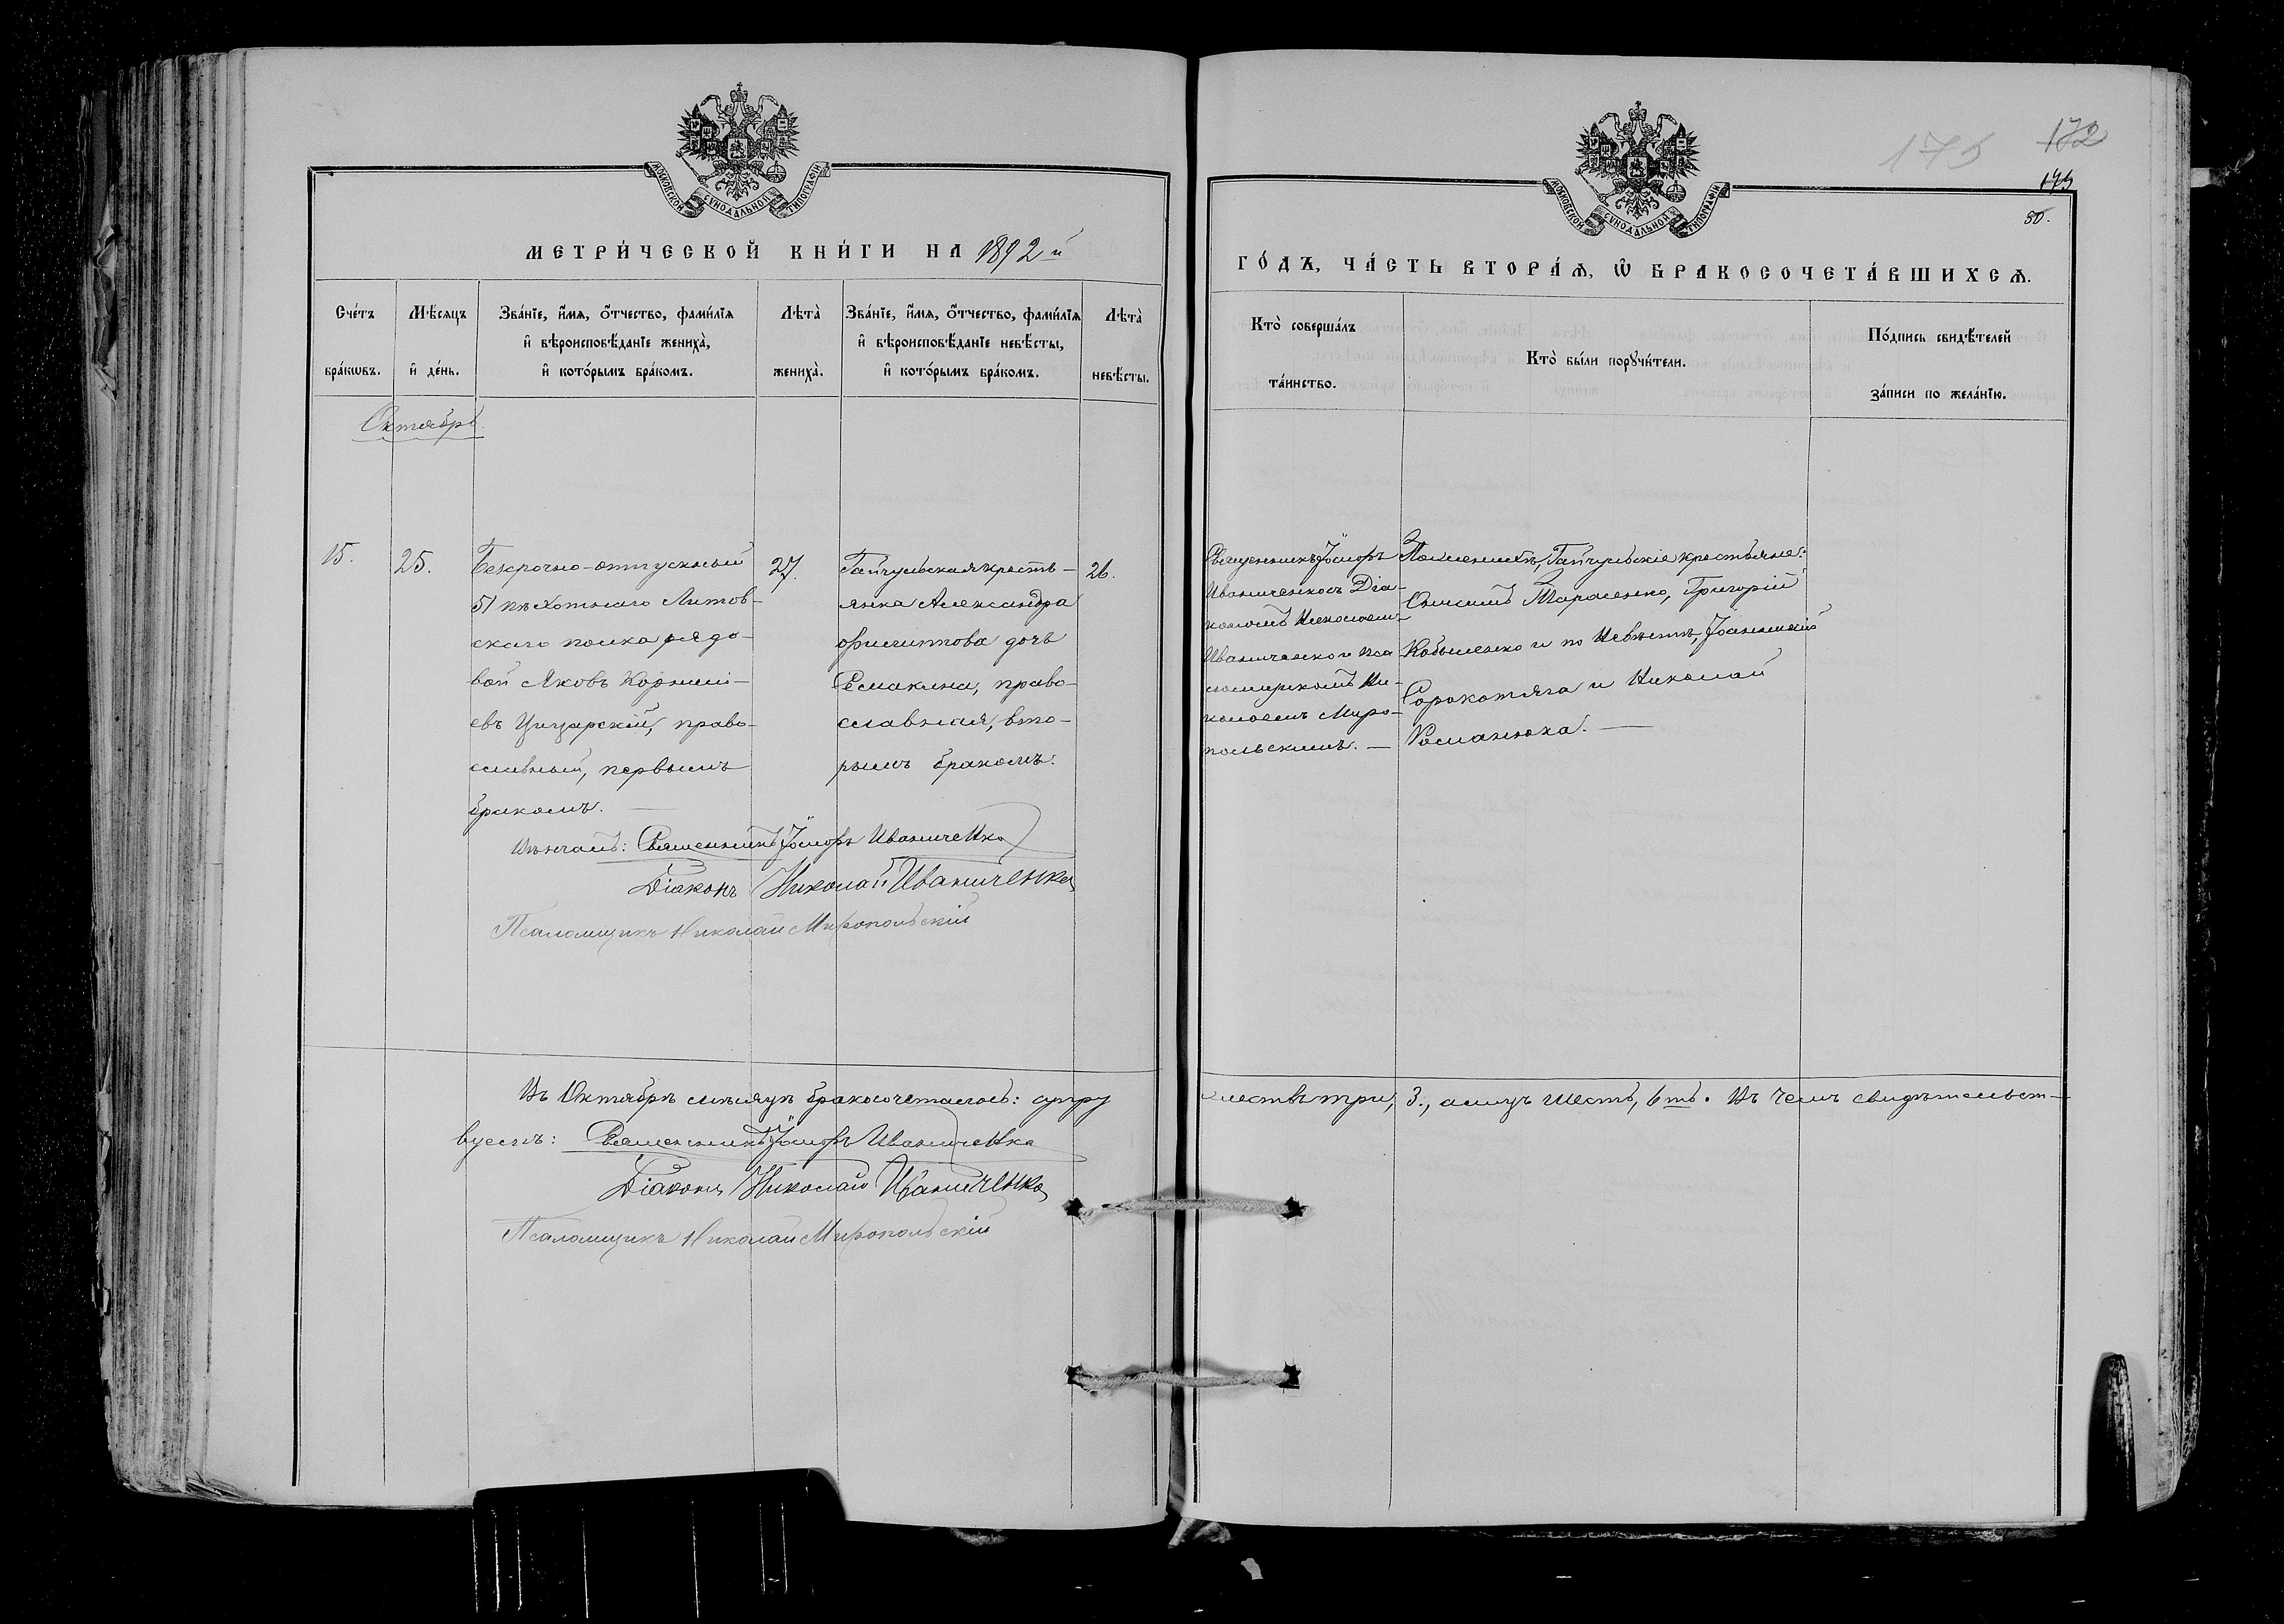 МОСКОВСКОЙ СѴНОДАЛЬНОЙ ТИПОГРАФІИ
МЕТРИ́ЧЕСКОЙ КНИ́ГИ НА 1892 й
Сче́тъ бра́кѡвъ.
Мѣ́сяцъ и҆ де́нь.
Зва́нїе, и҆́мѧ, ѻ҆́тчество, фами́лїѧ
и҆ вѣроисповѣ́данїе жениха̀,
и҆ кото́рымъ бра́комъ.
Лѣта̀ жениха̀.
Зва́нїе, и҆́мѧ, ѻ҆́тчество, фами́лїѧ
и҆ вѣроисповѣ́данїе невѣ́сты,
и҆ кото́рымъ бра́комъ.
Лѣта̀ невѣ́сты.
Октябрь.
15.
25.
Безсрочно-отпускный
51 пѣхотнаго Литов-
скаго полка рядо-
вой Яковъ Корнилі-
евъ Цицарскій, право-
славный, первымъ
бракомъ.
27.
Гайчульская кресть-
янка Александра
Филиппова дочь
право-
славная, вто-
рымъ бракомъ.
26.
Вѣнчалъ: Священникъ Іаковъ Иваниченко
Діаконъ Николай Иваниченко
Псаломщикъ Николай Миропольскій
Въ Октябрѣ мѣсяцѣ бракосочеталось: супру
вуемъ: Священникъ Іаковъ Иваниченко
Діаконъ Николай Иваниченко
Псаломщикъ Николай Миропольскій
175
172
175
50.
МОСКОВСКОЙ СѴНОДАЛЬНОЙ ТИПОГРАФІИ
ГО́ДЪ, ЧА́СТЬ ВТОРА́Ѧ, Ѡ҆ БРАКОСОЧЕТА́ВШИХСѦ.
Кто̀ соверша́лъ
та́инство.
Кто̀ бы́ли порꙋчи́тели.
По́дпись свидѣ́телей
за́писи по жела́нїю.
Священникъ Іаковъ
Иваниченко съ Діа-
кономъ Николаемъ
Иваниченко и пса
ломщикомъ Ни-
колаемъ Миро-
польскимъ.
По женихѣ, Гайчульскіе крестьяне:
Тарасенко, Григорій
Кобыленко и по невѣстѣ,
Сорокотяга и Николай
Романюха.
жествъ три, 3., а лицъ шесть, 6ть. Въ чемъ свидѣтельст-